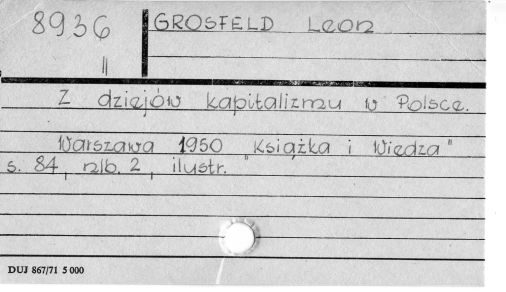 8936
GROSFELD Leon
Z dziejów kapitalizmu w Polsce.
Warszawa 1950 "Książka i Wiedza"
s. 84, nlb. 2, ilustr.
DUJ 867/71 5 000